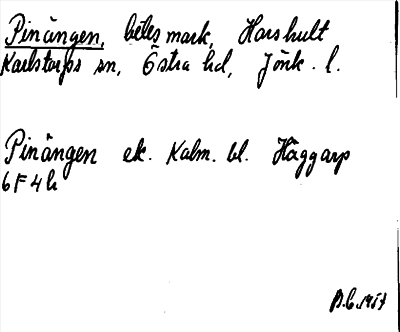 Pinängen, betesmark, Harshult
Karlstorps sn, Östra hd, Jönk. l.
Pinängen ek. Kalm. bl. Häggarp
6F4h
B.E. 1957